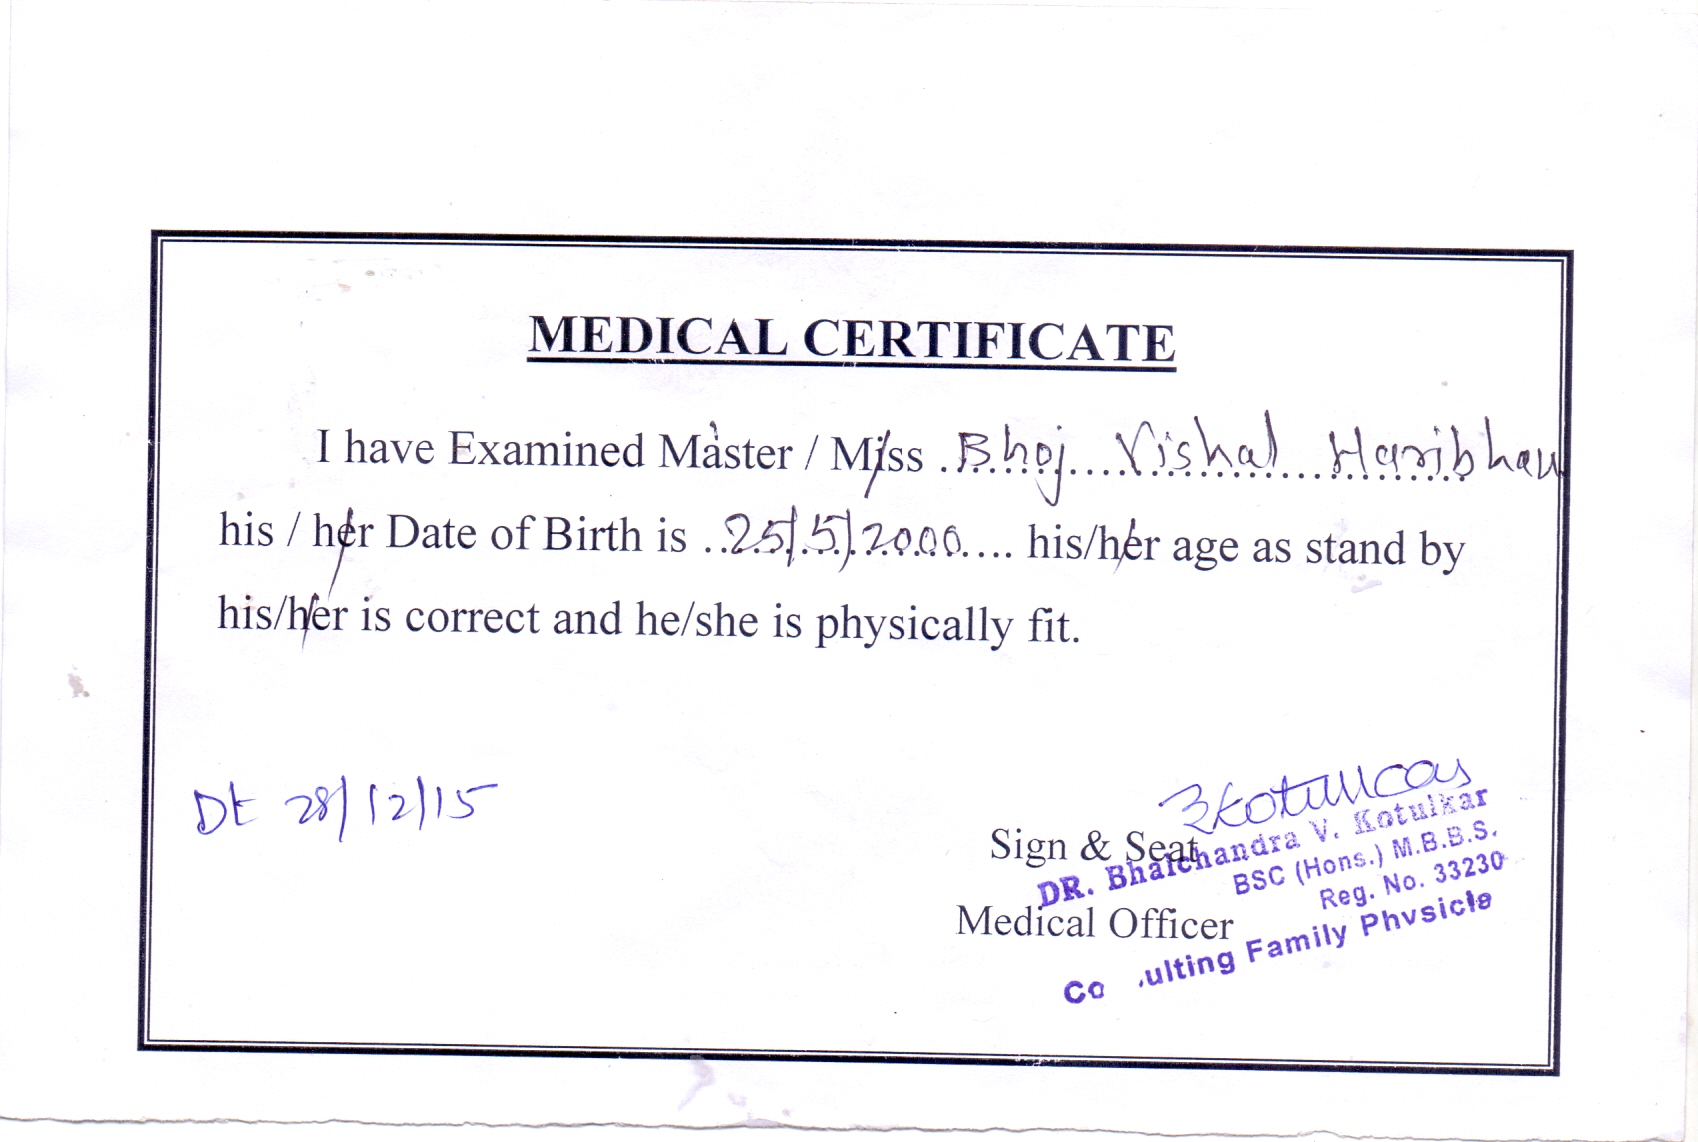 MEDICAL CERTIFICATE
I have Examined Master / Miss .Bhoj...Vishal...Haribhau
his / her Date of Birth is ..25/5/2000.... his/her age as stand by
his/her is correct and he/she is physically fit.
Dt 28/12/15
Kotulkar
Sign & Seat
DR. Bhalchandra V. Kotulkar
BSC (Hons.) M.B.B.S.
Reg. No. 33230
Medical Officer
Co ulting Family Physicia